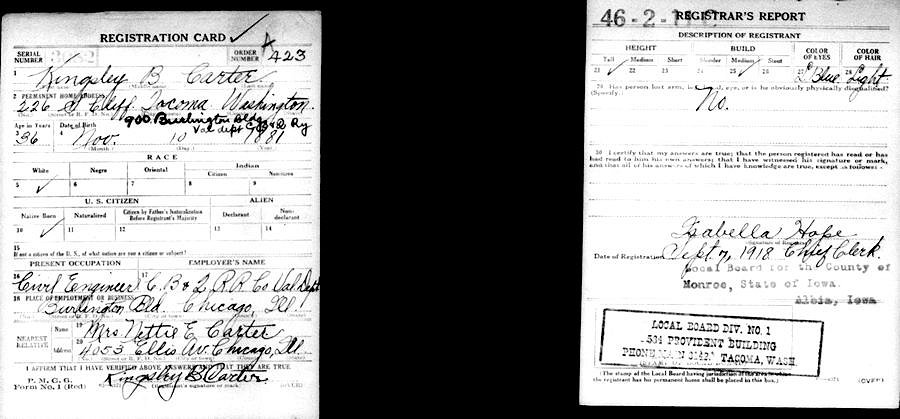 REGISTRATION CARD
SERIAL NUMBER
ORDER NUMBER A 423
1 Kingsley B. Carter
2 PERMANENT HOME ADDRESS
226 Cliff. Tacoma Washington.
900 Burlington Bldg
Val dept CB&Q Ry
Age in Years Date of Birth
3 36 4 Nov. 10 1881
(Month) (Day) (Year)
RACE
White Negro Oriental Indian
Citizen Noncitizen
5 ✓ 6 7 8 9
U. S. CITIZEN ALIEN
Native Born Naturalized Citizen by Father's Naturalization Before Registrant's Majority Declarant Non-declarant
10 ✓ 11 12 13 14
15 If not a citizen of the U. S., of what nation are you a citizen or subject?
PRESENT OCCUPATION EMPLOYER'S NAME
16 Civil Engineer 17 C. B & Q. R.R Co Val Dept
18 PLACE OF EMPLOYMENT OR BUSINESS
Burlington Bld. Chicago, Ill.
NEAREST RELATIVE
Name 19 Mrs Nettie E Carter
Address 20 4053 Ellis Av. Chicago, Ill
I AFFIRM THAT I HAVE VERIFIED ABOVE ANSWERS AND THAT THEY ARE TRUE
P. M. G. O.
Form No. 1 (Red)
Kingsley B Carter
(Registrant's signature or mark) (OVER)
46-2-
REGISTRAR'S REPORT
DESCRIPTION OF REGISTRANT
HEIGHT BUILD COLOR OF EYES COLOR OF HAIR
Tall Medium Short Slender Medium Stout
21 ✓ 22 23 24 25 ✓ 26 27 L Blue 28 Light
29 Has person lost arm, leg, hand, eye, or is he obviously physically disqualified?
(Specify).
No.
30 I certify that my answers are true; that the person registered has read or has
had read to him his own answers; that I have witnessed his signature or mark,
and that all of his answers of which I have knowledge are true, except as follows:
Isabella Hope
(Signature of Registrar)
Date of Registration Sept 7, 1918 Chief Clerk.
Local Board for the County of
Monroe, State of Iowa.
Albia, Iowa
LOCAL BOARD DIV. NO. 1
534 PROVIDENT BUILDING
TACOMA, WASH.
(The stamp of the Local Board having jurisdiction of the area in which
the registrant has his permanent home shall be placed in this box.)
(OVER)